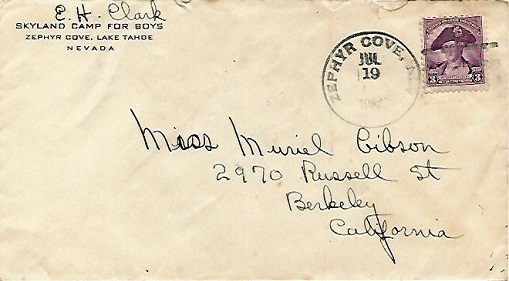 E. H. Clark
SKYLAND CAMP FOR BOYS
ZEPHYR COVE, LAKE TAHOE
NEVADA
ZEPHYR COVE,
JUL
19
3 3
Miss Muriel Gibson
2970 Russell St
Berkeley
California